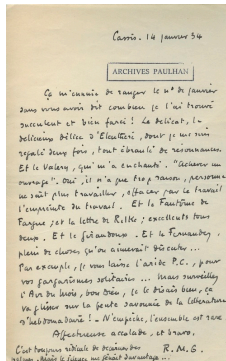 Cassis. 14 janvier 34
ARCHIVES PAULHAN
Ça m'ennuie de ranger le n° de janvier
sans vous avoir dit combien je l'ai trouvé
succulent et bien farci ! Le délicat, le
délicieux délice d'Eleuthéri, dont je me suis
régalé deux fois, tout ébranlé de résonnances.
Et le Valéry, qui m'a enchanté. "Achever un
ouvrage". Oui, il n'a que trop raison, personne
ne sait plus travailler, effacer par le travail
l'empreinte du travail. Et le Fantôme de
Fargue ; et la lettre de Rilke ; excellents tous
deux. Et le Giraudoux. Et le Fernandez,
plein de choses qu'on aimerait discuter ...
Par exemple, je vous laisse l'aride P.C., pour
vos gargarismes solitaires ... Mais surveillez
l'Air du Mois, bon Dieu, je le disais bien, ça
va glisser sur la pente savonnée de la littérature
d'hebdomadaire ! N'empêche, l'ensemble est rare
Affectueuse accolade, et bravo.
R.M.G.
C'est toujours ridicule de